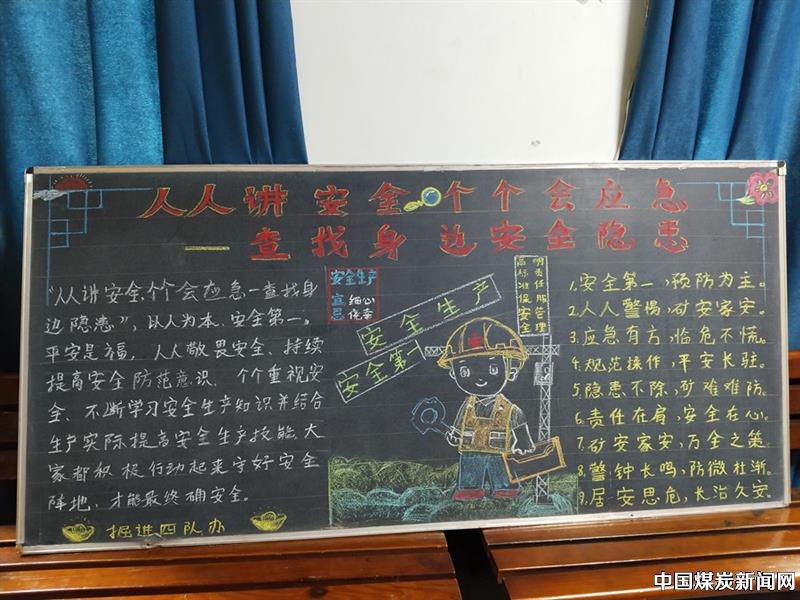 人人讲安全个个会应急
—查找身边安全隐患
"人人讲安全，个个会应急—查找身
边隐患"，以人为本、安全第一，
平安是福，人人敬畏安全、持续
提高安全防范意识、个个重视安
全、不断学习安全生产知识并结合
生产实际提高安全生产技能，大
家都积极行动起来守好安全
阵地，才能最终确安全。
掘进四队办
安全生产
宜 细心
忌 侥幸
安全生产
安全第一
高标准保安全
明责任服管理
1.安全第一，预防为主。
2.人人警惕，矿安家安。
3.应急有方，临危不慌。
4.规范操作，平安长驻。
5.隐患不除，矿难难防。
6.责任在肩，安全在心。
7.矿安家安，万全之策。
8.警钟长鸣，防微杜渐。
9.居安思危，长治久安。
中国煤炭新闻网